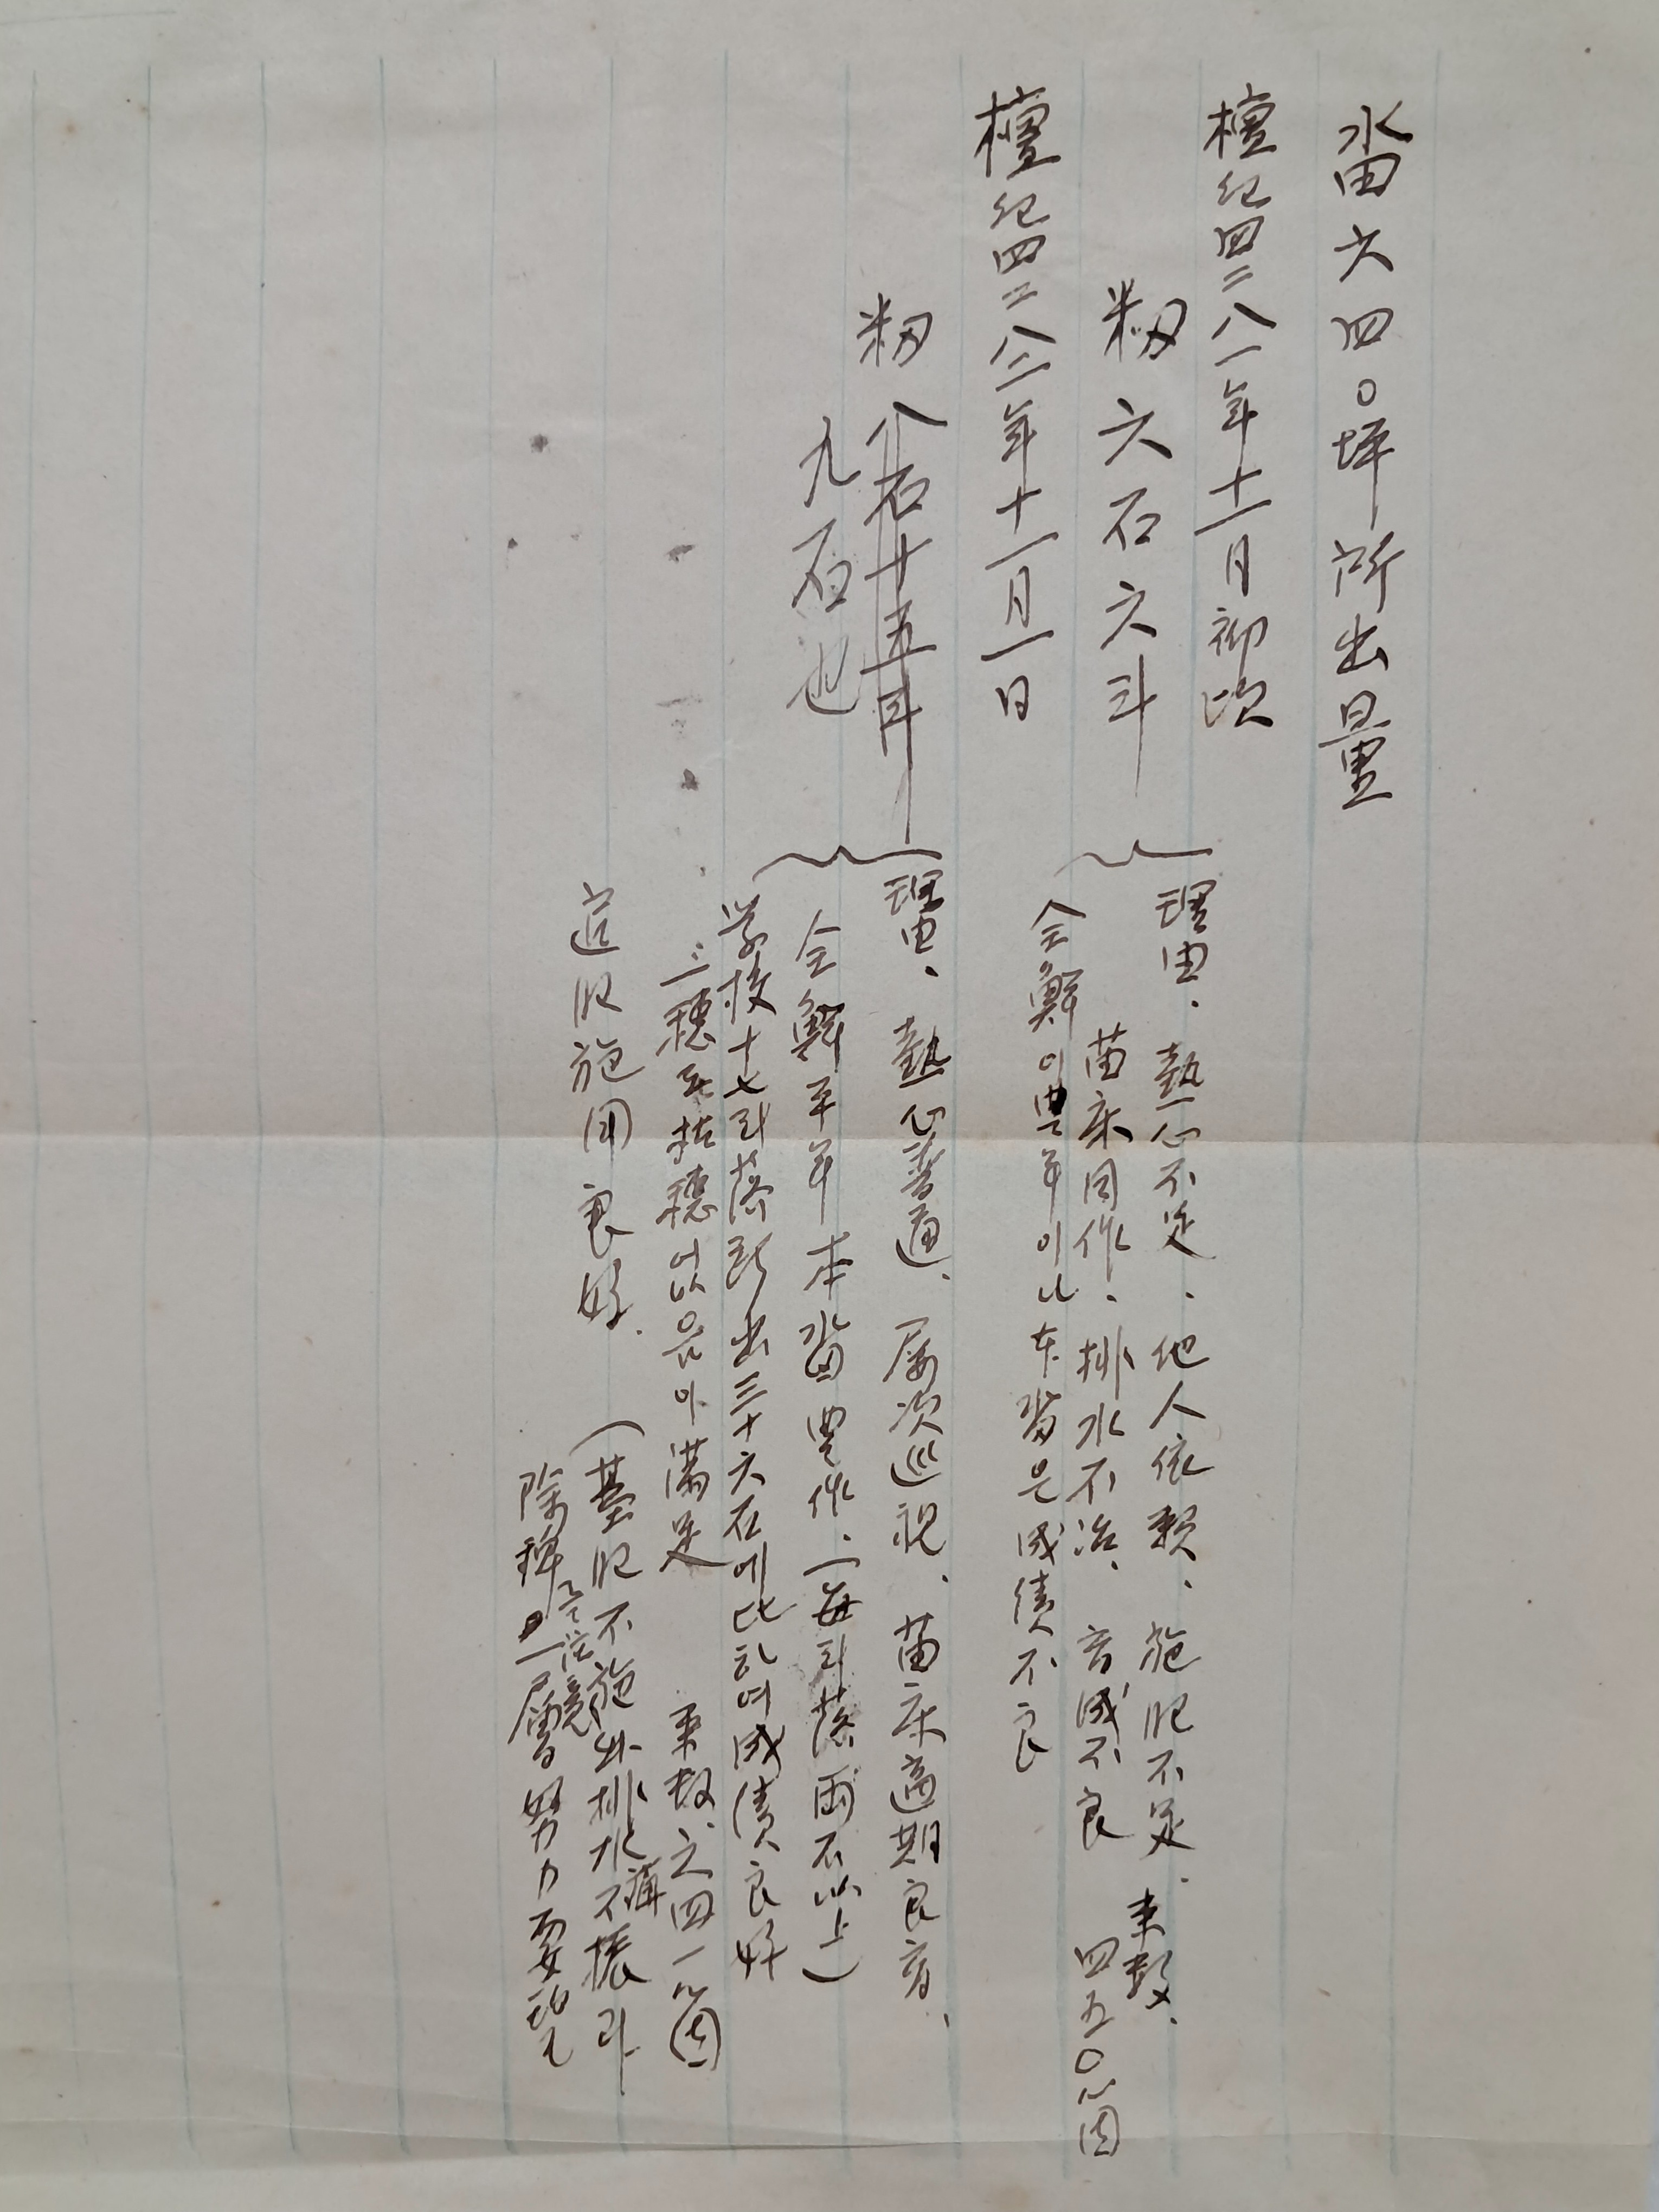 畓六四〇坪所出量
檀紀四二八一年十一月初旬
籾 六石六斗
理由、熱心不足、他人依賴、施肥不足、束數、
苗床同作、排水不治、育成不良 四五〇個
全鮮이豊年이나本畓은成績不良
檀紀四二八二年十一月一日
籾 八石十五斗
九石也
理由、熱心普通、屢次巡視、苗床適期良育、
全鮮平年本畓豊作、(每斗落兩石以上)
学校十七斗落所出三十六石에比하여成績良好
三穗乃至枯穗이있음이滿足 束数、六四一個
追肥施用良好、
(基肥不施와排水不振과
除稗를注意 一層努力要望